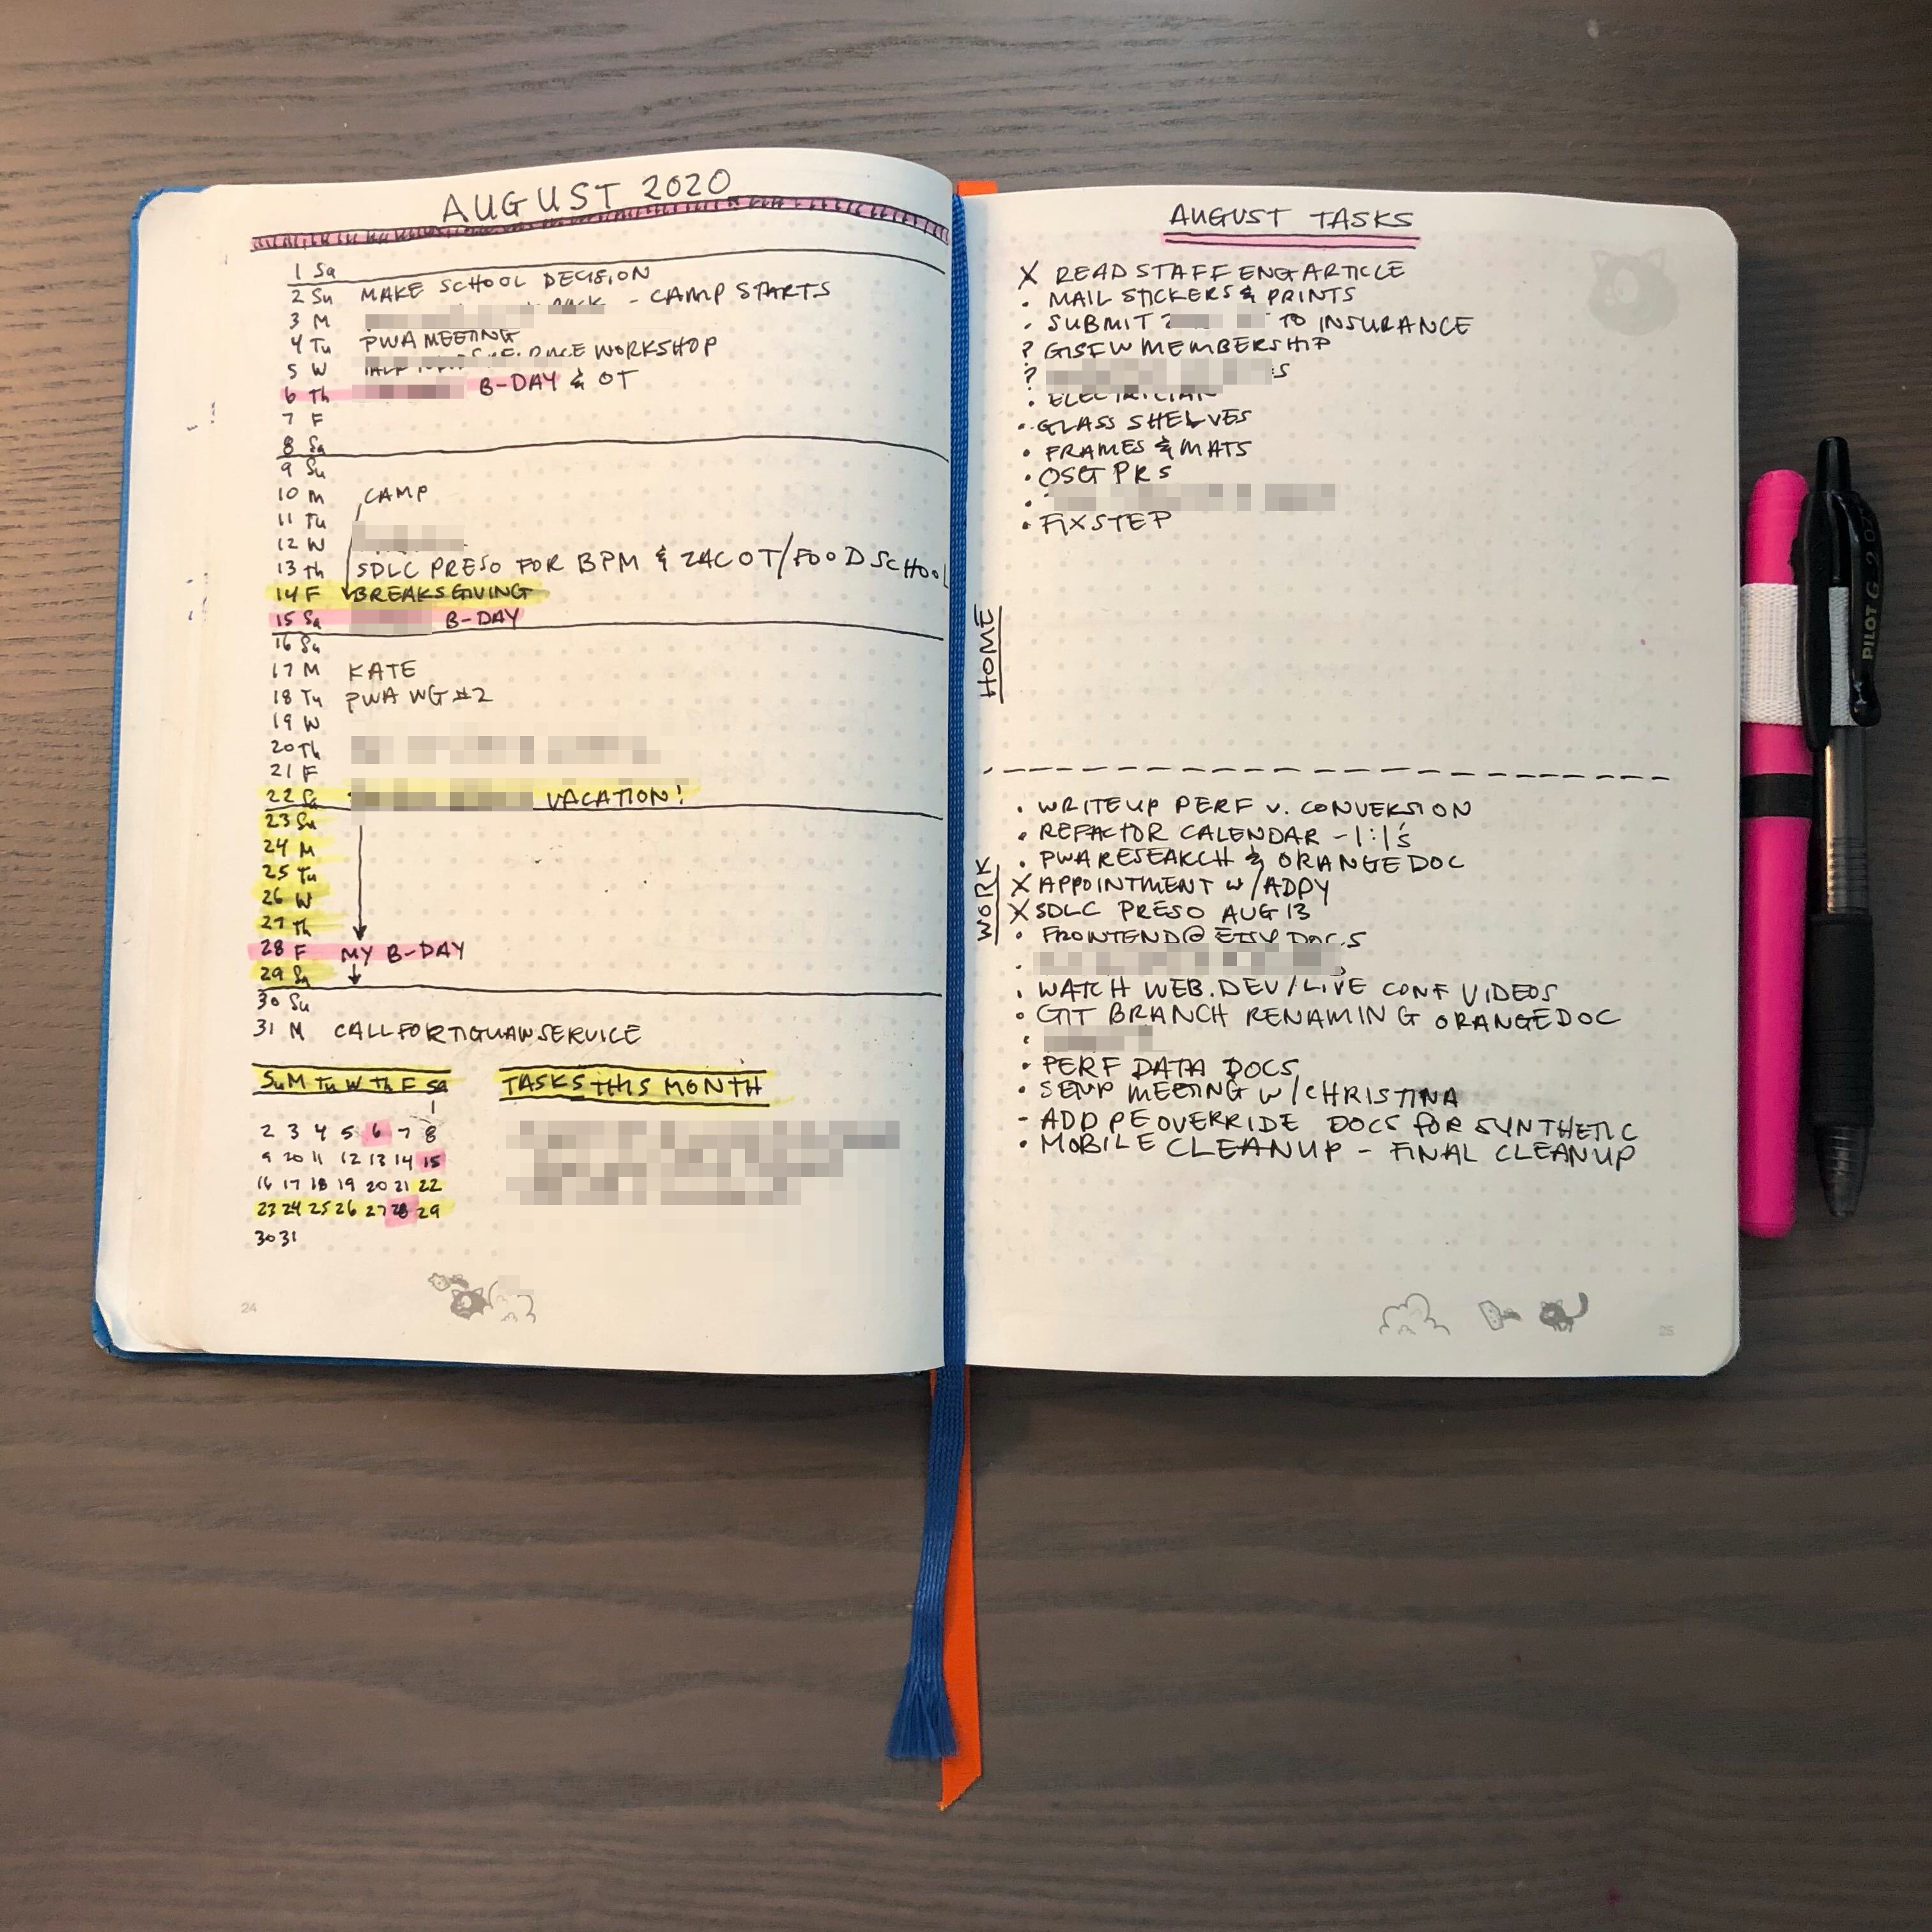 AUGUST 2020
1 Sa
2 Su MAKE SCHOOL DECISION
3 M - CAMP STARTS
4 Tu PWA MEETING
5 W WORKSHOP
6 Th B-DAY & OT
7 F
8 Sa
9 Su
10 M CAMP
11 Tu
12 W
13 Th SDLC PRESO FOR BPM & ZAC OT/FOOD SCHOOL
14 F BREAKSGIVING
15 Sa B-DAY
16 Su
17 M KATE
18 Tu PWA WG #2
19 W
20 Th
21 F
22 Sa VACATION!
23 Su
24 M
25 Tu
26 W
27 Th
28 F MY B-DAY
29 Sa
30 Su
31 M CALL FOR TIGUAN SERVICE
Su M Tu W Th F Sa
1
2 3 4 5 6 7 8
9 10 11 12 13 14 15
16 17 18 19 20 21 22
23 24 25 26 27 28 29
30 31
TASKS THIS MONTH
24
AUGUST TASKS
HOME
X READ STAFF ENG ARTICLE
• MAIL STICKERS & PRINTS
• SUBMIT TO INSURANCE
? GISFW MEMBERSHIP
?
• ELECTRICIAN
• GLASS SHELVES
• FRAMES & MATS
• OSG PRS
•
• FIX STEP
WORK
• WRITE UP PERF V. CONVERSION
• REFACTOR CALENDAR - 1:1's
• PWA RESEARCH & ORANGEDOC
X APPOINTMENT W/ADPY
X SDLC PRESO AUG 13
• FRONTEND@ETSY DOCS
•
• WATCH WEB.DEV/LIVE CONF VIDEOS
• GIT BRANCH RENAMING ORANGEDOC
•
• PERF DATA DOCS
• SEND MEETING W/CHRISTINA
- ADD PE OVERRIDE DOCS FOR SYNTHETIC
• MOBILE CLEANUP - FINAL CLEANUP
25
PILOT G2 07